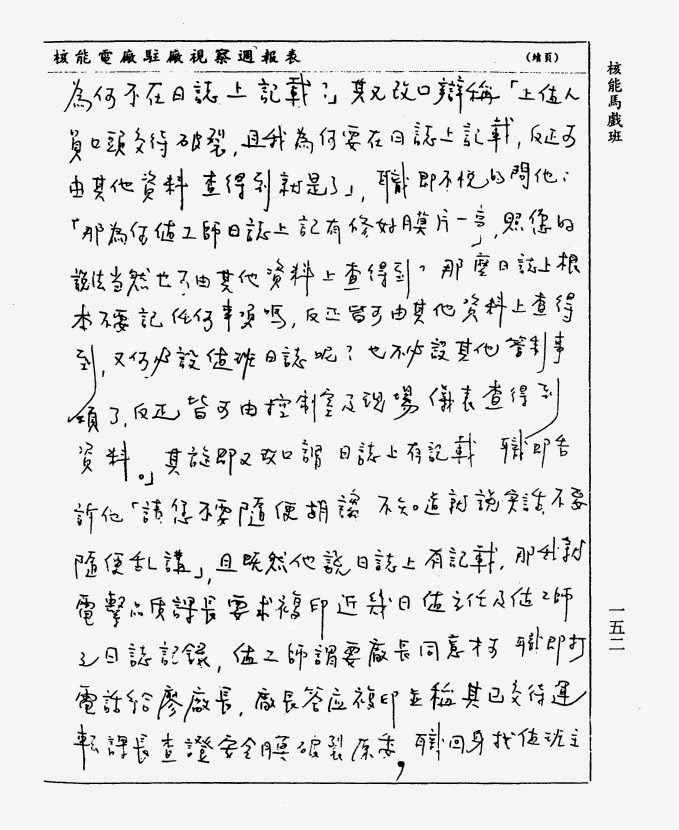 核能電廠駐廠視察週報表 (續頁)
為何不在日誌上記載?」其又改口辯稱「上值人
員口頭交待破裂,且我為何要在日誌上記載,反正可
由其他資料查得到就是了」,職即不悅的問他:
「那為何值工師日誌上記有修好膜片一言,照您的
說法當然也可由其他資料上查得到?那麼日誌上根
本不要記任何事項嗎,反正皆可由其他資料上查得
到,又何必設值班日誌呢?也不必設其他管制事
項了,反正皆可由控制室及現場儀表查得到
資料。」其旋即又改口謂日誌上有記載 職即告
訴他「請您不要隨便胡謅 不知道就說實話,不要
隨便乱講」,且既然他說日誌上有記載,那我就
電擊品質課長要求複印近幾日值主任及值工師
之日誌記錄,值工師謂要廠長同意才可 職即打
電話給廖廠長,廠長答应複印並稱其已交待運
轉課長查證安全膜破裂原委,職回身找值班主
核能馬戲班
一五二